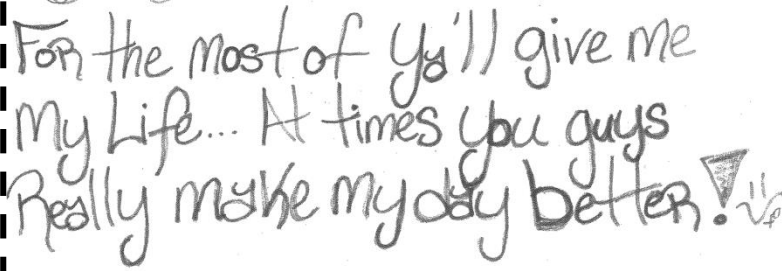 For the most of Ya'll give me
My Life... At times you guys
Really make my day better!